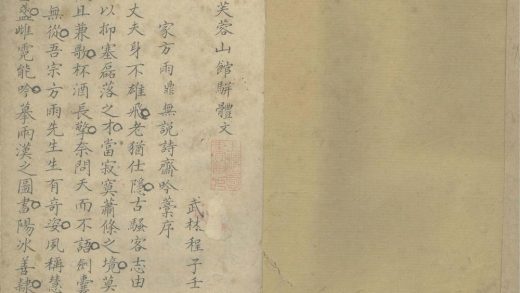 芙蓉山館駢體文
武林程子壬
家方雨鼎無説詩齋吟藁序
丈夫身不雄飛老猶仕隱古騷客志由
以抑塞磊落之才當寂寞蕭條之境莫
且兼歌杯酒長擎奈問天而不語劍囊
無從吾宗方雨先生生有奇姿夙稱慧
盛雌霓能吟摹兩漢之圖書陽冰善隸